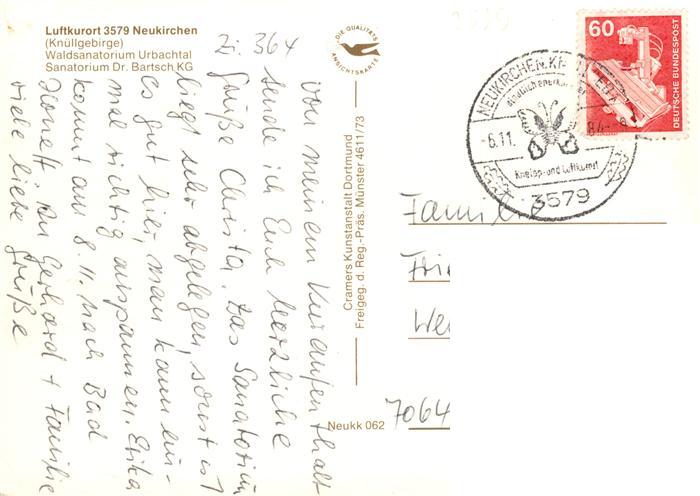 Luftkurort 3579 Neukirchen
(Knüllgebirge)
Waldsanatorium Urbachtal
Sanatorium Dr. Bartsch KG
Zi. 364
Von meinem Kuraufenthalt
sende ich Euch herzliche
Grüße Christa. Das Sanatorium
liegt sehr abgelegen, sonst ist
es gut hier, man kann ein-
mal richtig ausspannen. Erika
kommt am 8.11. nach Bad
viele liebe Grüße
DIE QUALITÄTS
ANSICHTSKARTE
Cramers Kunstanstalt Dortmund
Freigeg. d. Reg.-Präs. Münster 4611/73
Neukk 062
60
DEUTSCHE BUNDESPOST
-6.11.
84
Kneipp- und Luftkurort
3579
Familie
7064